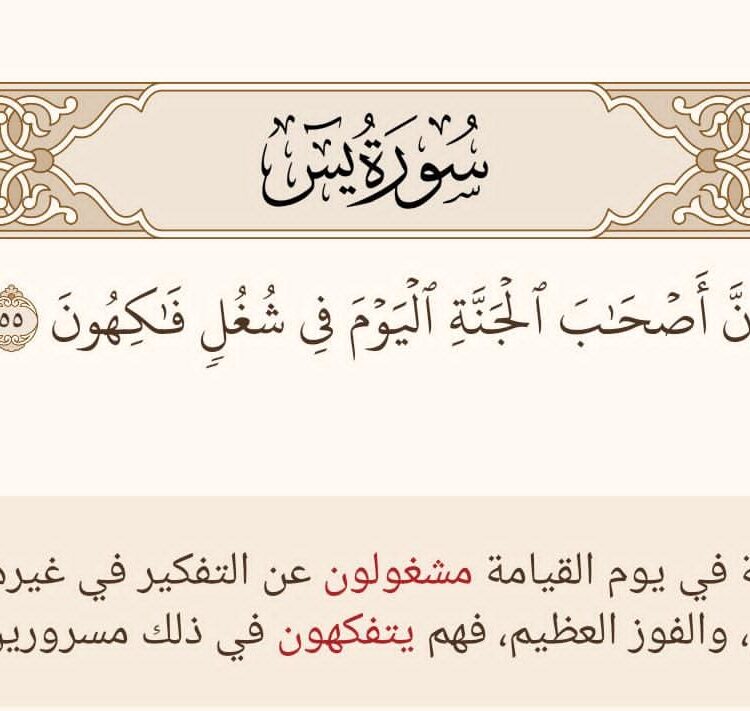 سُورَةُ يسٓ
نَّ أَصْحَٰبَ ٱلْجَنَّةِ ٱلْيَوْمَ فِى شُغُلٍ فَٰكِهُونَ ٥٥
في يوم القيامة مشغولون عن التفكير في
، والفوز العظيم، فهم يتفكهون في ذلك